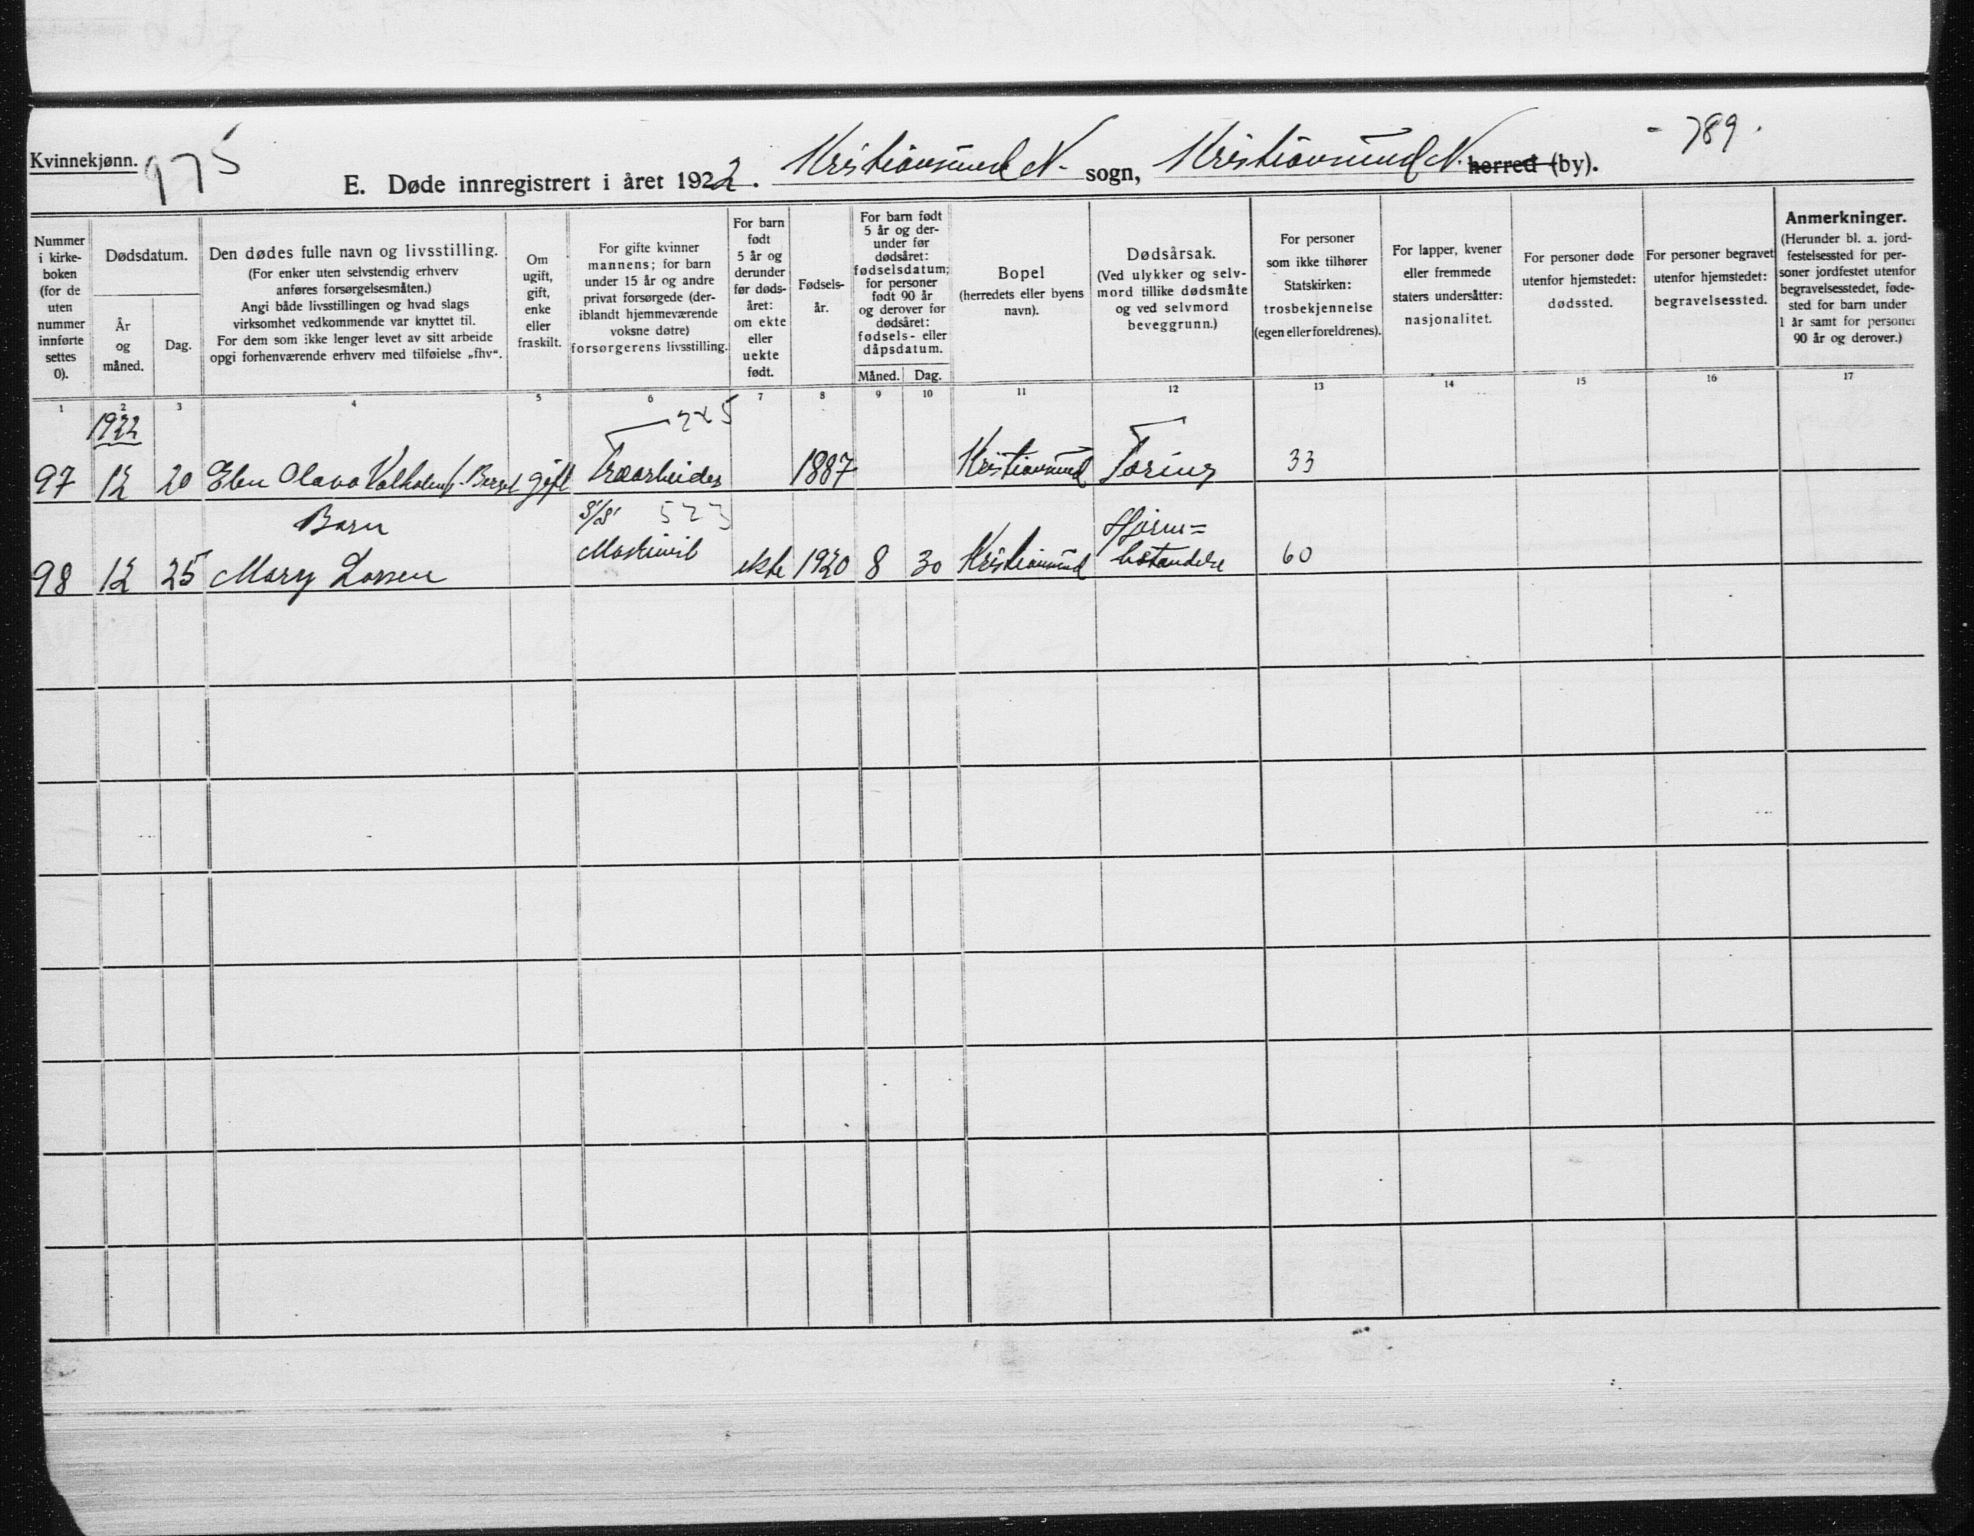 - 789.
Kvinnekjønn. 975
E. Døde innregistrert i året 1922. Kristiansund N. sogn, Kristiansund N. herred (by).
Nummer
i kirke-
boken
(for de
uten
nummer
innførte
settes
0).
Dødsdatum.
År
og
måned.
Dag.
Den dødes fulle navn og livsstilling.
(For enker uten selvstendig erhverv
anføres forsørgelsesmåten.)
Angi både livsstillingen og hvad slags
virksomhet vedkommende var knyttet til.
For dem som ikke lenger levet av sitt arbeide
opgi forhenværende erhverv med tilføielse „fhv“.
Om
ugift,
gift,
enke
eller
fraskilt.
For gifte kvinner
mannens; for barn
under 15 år og andre
privat forsørgede (der-
iblandt hjemmeværende
voksne døtre)
forsørgerens livsstilling.
For barn
født
5 år og
derunder
før døds-
året:
om ekte
eller
uekte
født.
Fødsels-
år.
For barn født
5 år og der-
under før
dødsåret:
fødselsdatum;
for personer
født 90 år
og derover før
dødsåret:
fødsels- eller
dåpsdatum.
Måned. Dag.
Bopel
(herredets eller byens
navn).
Dødsårsak.
(Ved ulykker og selv-
mord tillike dødsmåte
og ved selvmord
beveggrunn.)
For personer
som ikke tilhører
Statskirken:
trosbekjennelse
(egen eller foreldrenes).
For lapper, kvener
eller fremmede
staters undersåtter:
nasjonalitet.
For personer døde
utenfor hjemstedet:
dødssted.
For personer begravet
utenfor hjemstedet:
begravelsessted.
Anmerkninger.
(Herunder bl. a. jord-
festelsessted for per-
soner jordfestet utenfor
begravelsesstedet, føde-
sted for barn under
1 år samt for personer
90 år og derover.)
1 2 3 4 5 6 7 8 9 10 11 12 13 14 15 16 17
1922
225
97 12 20 Olava gift Træarbeider 1887 Kristiansund Tæring 33
Barn
S/S 523
Hjerne=
98 12 25 Mary Larsen Maskinist ekte 1920 8 30 Kristiansund betændelse 60